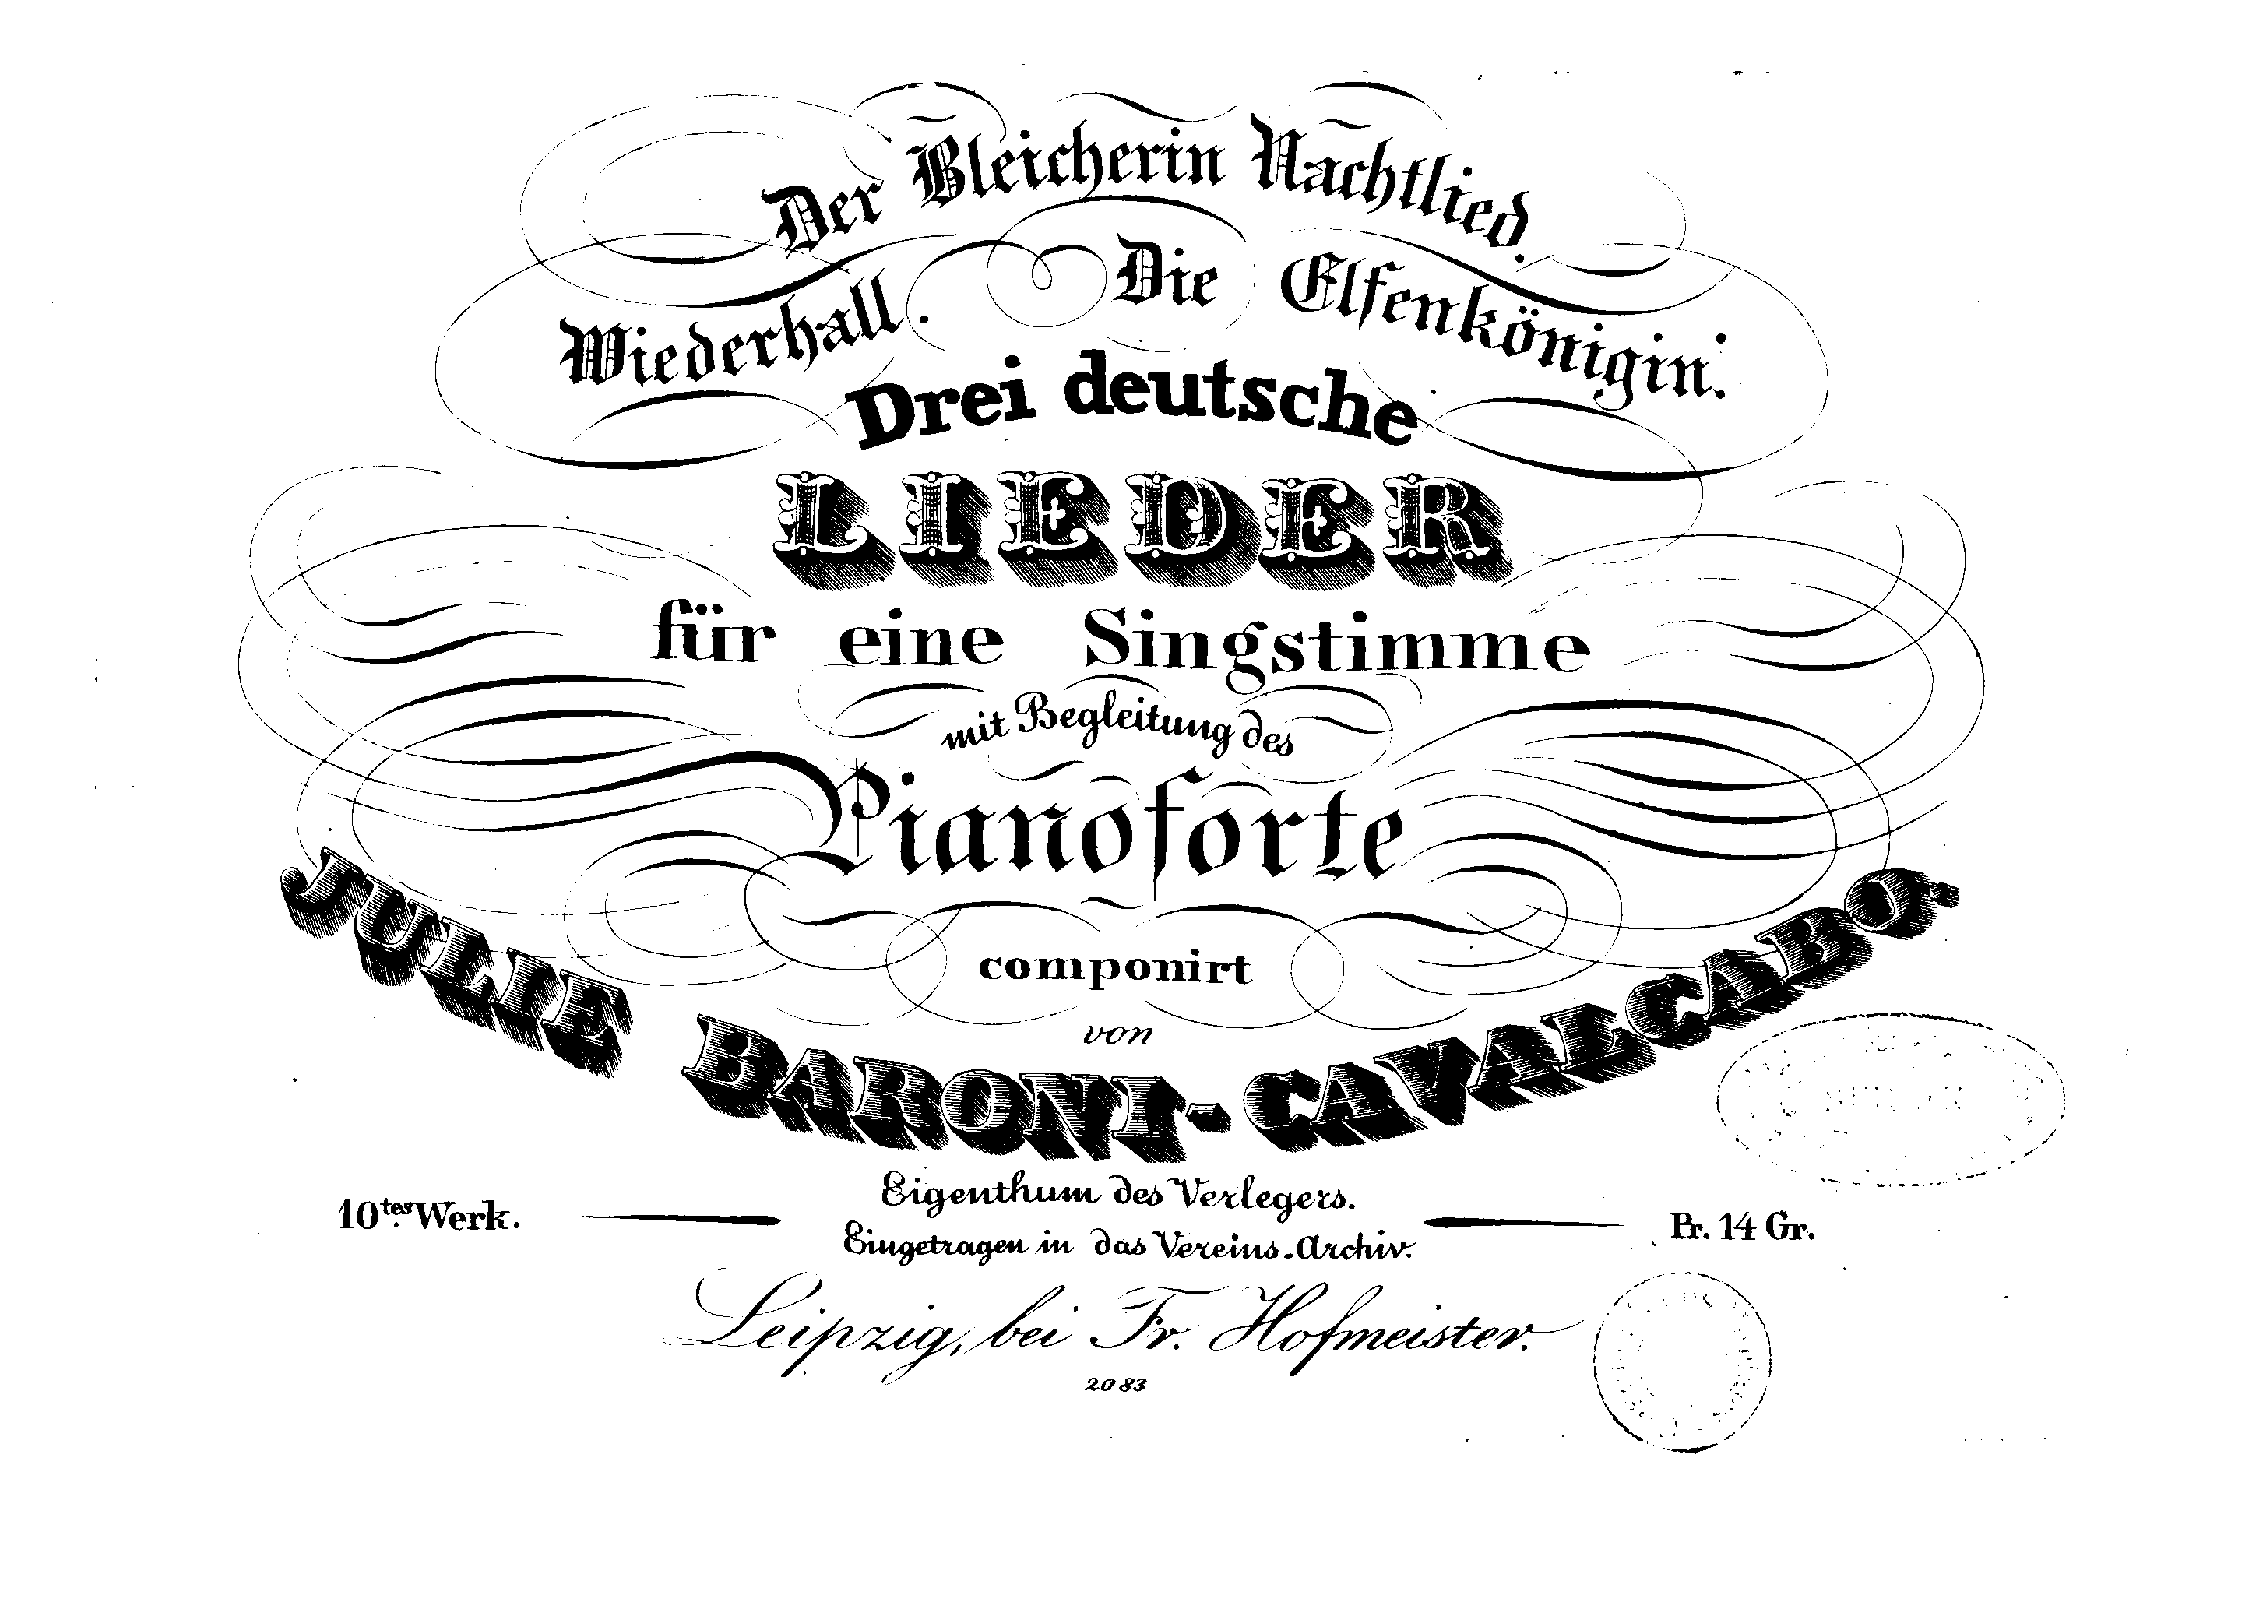 Der Bleicherin Nachtlied.
Wiederhall. Die Elfenkönigin.
Drei deutsche
LIEDER
für eine Singstimme
mit Begleitung des
Pianoforte
componirt
von
JULIE BARONI-CAVALCABO.
10tes Werk.
Eigenthum des Verlegers.
Eingetragen in das Vereins-Archiv.
Pr. 14 Gr.
Leipzig, bei Fr. Hofmeister.
2083